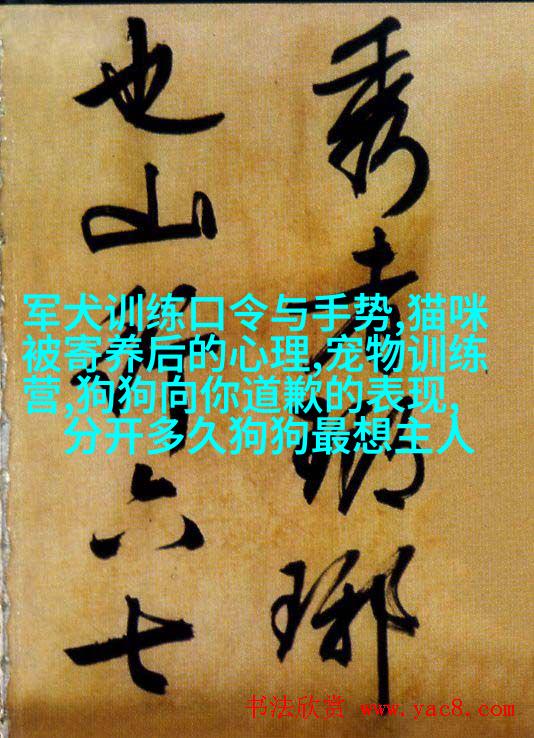 秀者瑯琊
也山行六七
军犬训练口令与手势,猫咪
被寄养后的心理,宠物训练
营,狗狗向你道歉的表现,
分开多久狗狗最想主人
书法欣赏 www.yac8.com